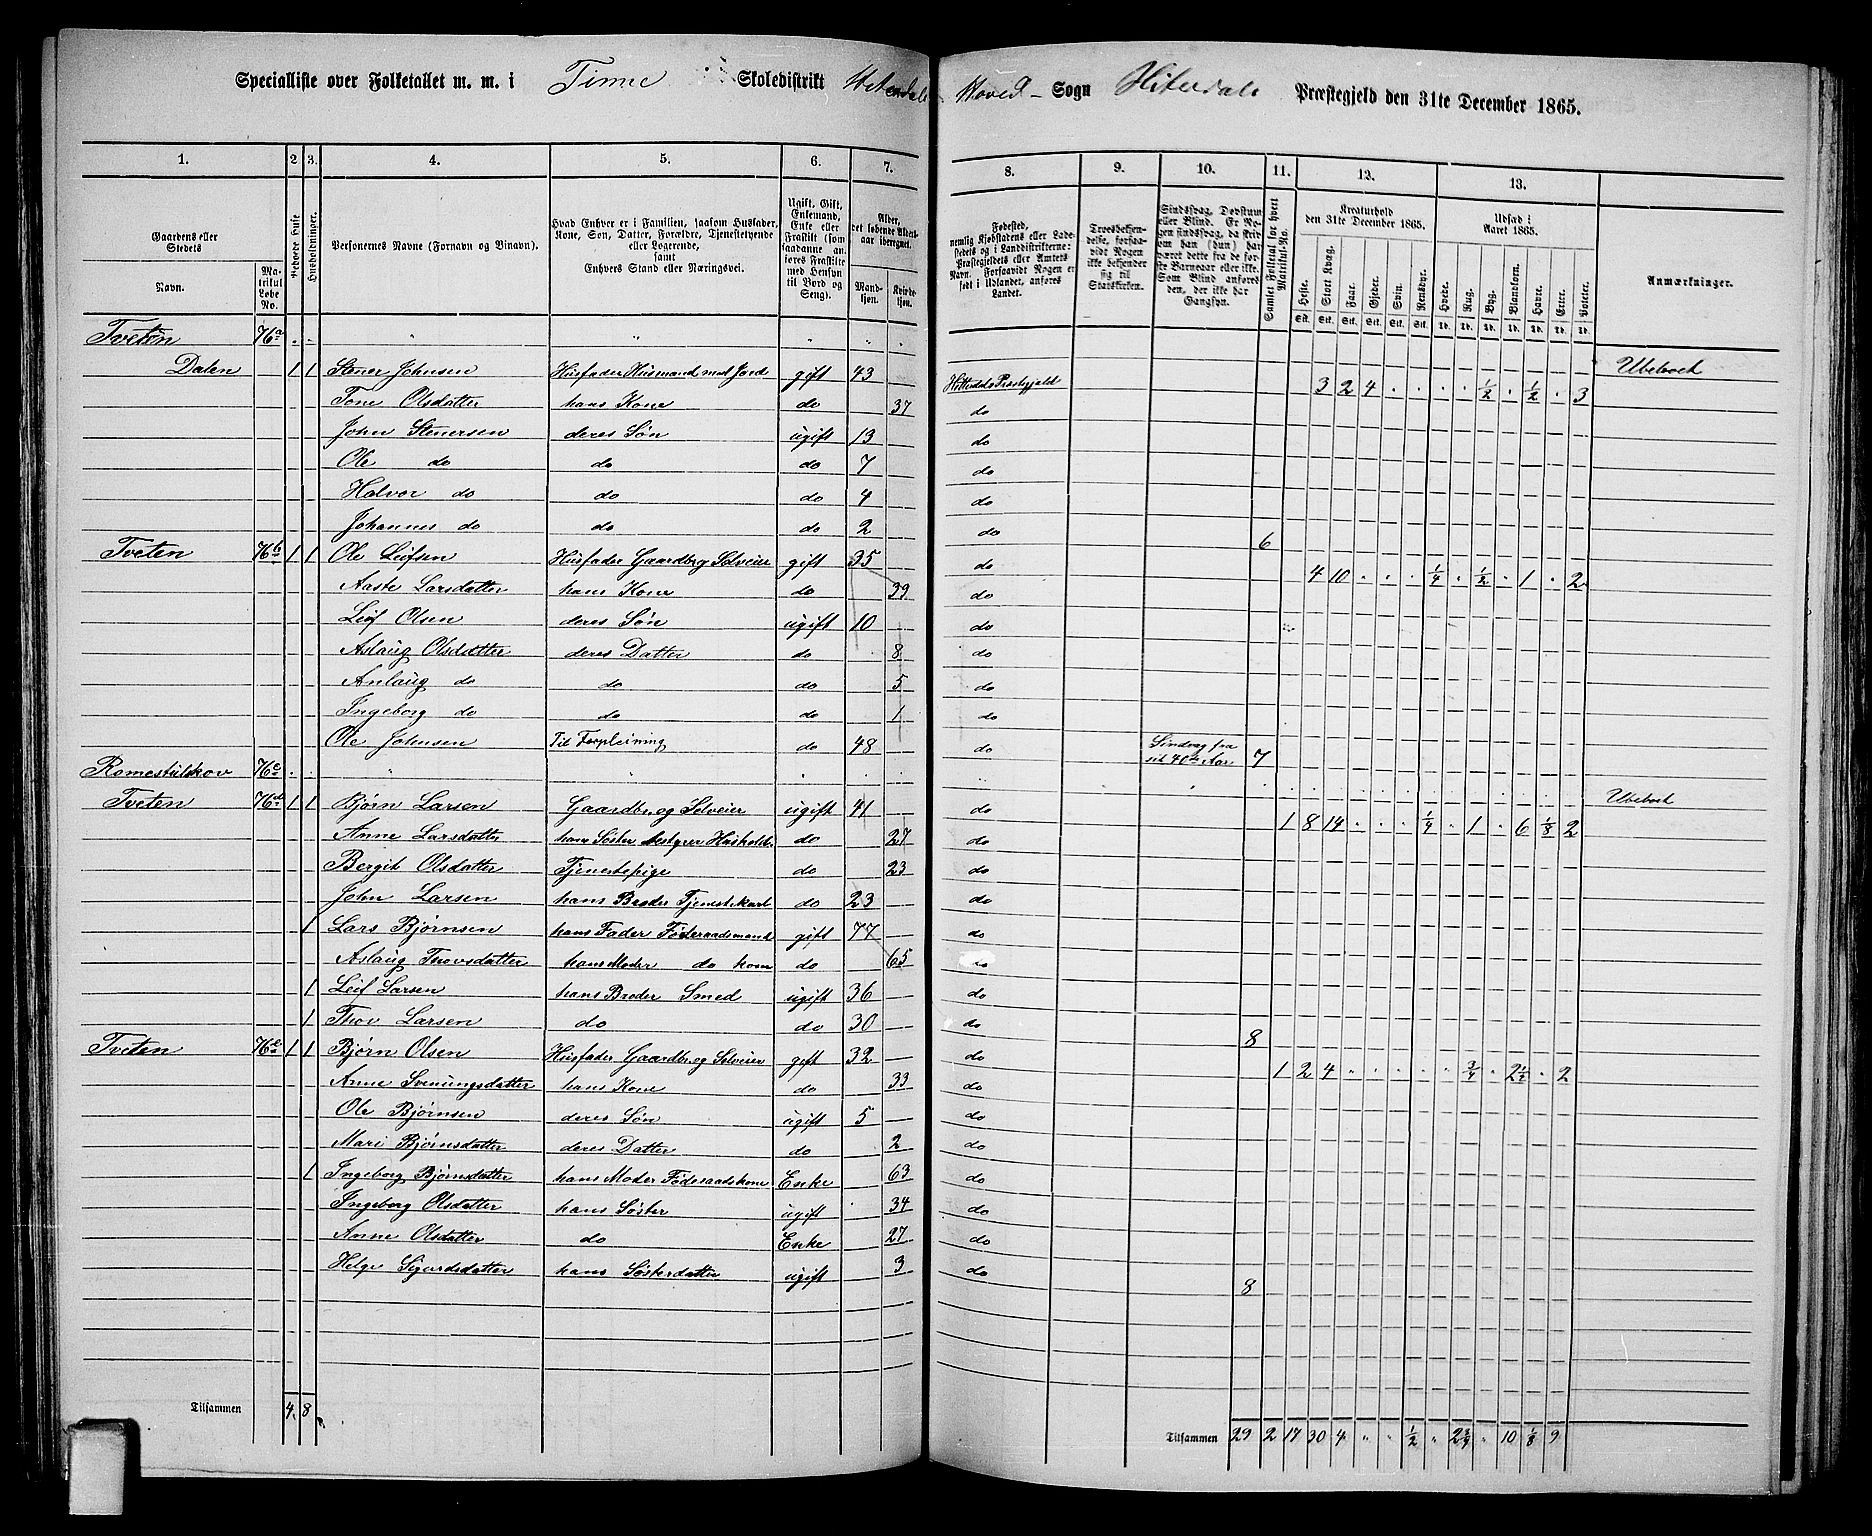 Specialliste over Folketallet m. m. i Tinne Skoledistrikt Hiterdals Hoved- Sogn Hiterdals Præstegjeld den 31te December 1865.
1. 2 3. 4. 5. 6. 7. 8. 9. 10. 11. 12. 13.
Gaardens eller Stedets Navn. Matrikul Løbe No. Beboede Huse Husholdninger. Personernes Navne (Fornavn og Tilnavn).
Hvad Enhver er i Familien, saasom Husfader, Kone, Søn, Datter, Forældre, Tjenestetyende eller Logerende, samt Enhvers Stand eller Næringsvei.
Ugift, Gift, Enkemand, Enke eller Fraskilt (som saadanne anføres Fraskilte med Hensyn til Bord og Seng).
Alder, det løbende Alders-aar iberegnet. Mandkjøn. Kvindekjøn.
Fødested, nemlig Kjøbstadens eller Ladestedets og i Landdistrikterne: Præstegjeldets eller Amtets Navn. Forsaavidt Nogen er født i Udlandet, anføres Landet.
Troesbekjendelse, forsaavidt Nogen ikke bekjender sig til Statskirken.
Sindssvag, Døvstum eller Blind. Er Nogen sindssvag, da skrives om han (hun) har været dette fra de første Barneaar eller ikke. Som Blind anføres den, der ikke har Gangsyn.
Samlet Folketal for hvert Matrikul-No.
Kreaturhold den 31te December 1865. Heste. Stort Kvæg. Faar. Gjeder. Svin. Rensdyr.
Udsæd i Aaret 1865. Hvede. Rug. Byg. Blandkorn. Havre. Erter. Poteter.
Anmærkninger.
Tveten 76a Ubeboet
Dalen 1 1 Stener Johnsen Husfader Husmand med Jord gift 43 Hitterdals Prestegjeld 3 2 4 1/2 1/2 3
Tone Olsdatter hans Kone do 37 do
John Stenersen deres Søn ugift 13 do
Ole do do do 7 do
Halvor do do do 4 do
Johannes do do do 2 do 6
Tveten 76b 1 1 Ole Leifsen Husfader Gaardbr og Selveier gift 35 do 4 10 1/4 1/2 1 2
Aaste Larsdatter hans Kone do 39 do
Leif Olsen deres Søn ugift 10 do
Aslaug Olsdatter deres Datter do 8 do
Anlaug do do do 5 do
Ingeborg do do do 1 do
Ole Johnsen Til Forpleining do 48 do Sindsvag fra sit 40de Aar 7
Romestulskov 76c Ubeboet
Tveten 76d 1 1 Bjørn Larsen Gaardbr. og Selveier ugift 41 do 1 8 14 1/4 1 6 1/8 2
Anne Larsdatter hans Søster bestyrer Hushold. do 27 do
Bergit Olsdatter Tjenestepige do 23 do
John Larsen hans Broder Tjenestekarl do 23 do
1 Lars Bjørnsen hans Fader Føderaadsmand gift 77 do
Aslaug Thovsdatter hans Moder do kone do 65 do
1 Leif Larsen hans Broder Smed ugift 36 do
1 Thov Larsen do do 30 do 8
Tveten 76e 1 1 Bjørn Olsen Husfader Gaardbr og Selveier gift 32 do 1 2 4 3/4 2 1/4 2
Anne Svenungsdatter hans Kone do 33 do
Ole Bjørnsen deres Søn ugift 5 do
Mari Bjørnsdatter deres Datter do 2 do
1 Ingeborg Bjørnsdatter hans Moder Føderaadskone Enke 63 do
Ingeborg Olsdatter hans Søster ugift 34 do
Anne Olsdatter do Enke 27 do
Helge Sigurdsdatter hans Søsterdatter ugift 3 do 8
Tilsammen 4 8 Tilsammen 29 2 17 30 4 1/2 2 3/4 10 1/8 9